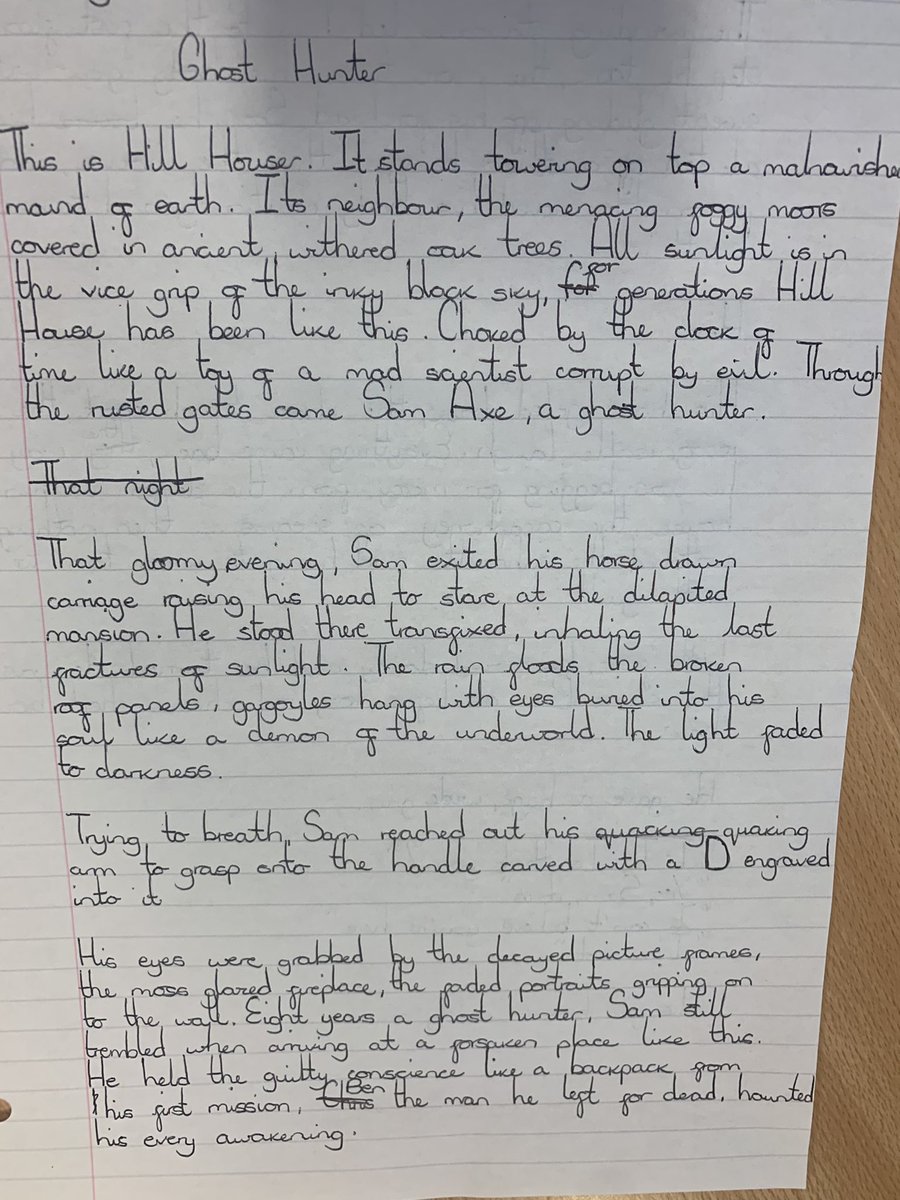 Ghost Hunter
This is Hill House. It stands towering on top a
mound of earth. Its neighbour, the menacing foggy moors
covered in ancient, withered oak trees. All sunlight is in
the vice grip of the inky black sky, for for generations Hill
House has been like this. Choked by the clock of
time like a toy of a mad scientist corrupt by evil. Through
the rusted gates came Sam Axe, a ghost hunter.
That night
That gloomy evening, Sam exited his horse drawn
carriage raysing his head to stare at the dilapited
mansion. He stood there transfixed, inhaling the last
fractures of sunlight. The rain floods the broken
roof panels, gargoyles hang with eyes buried into his
soul like a demon of the underworld. The light faded
to darkness.
Trying to breath, Sam reached out his quacking quaking
arm to grasp onto the handle carved with a D engraved
into it
His eyes were grabbed by the decayed picture frames,
the moss glazed fireplace, the faded portraits gripping on
to the wall. Eight years a ghost hunter, Sam still
trembled when arriving at a forsaken place like this.
He held the guilty conscience like a backpack from
his first mission, Ben the man he left for dead, haunted
his every awakening.